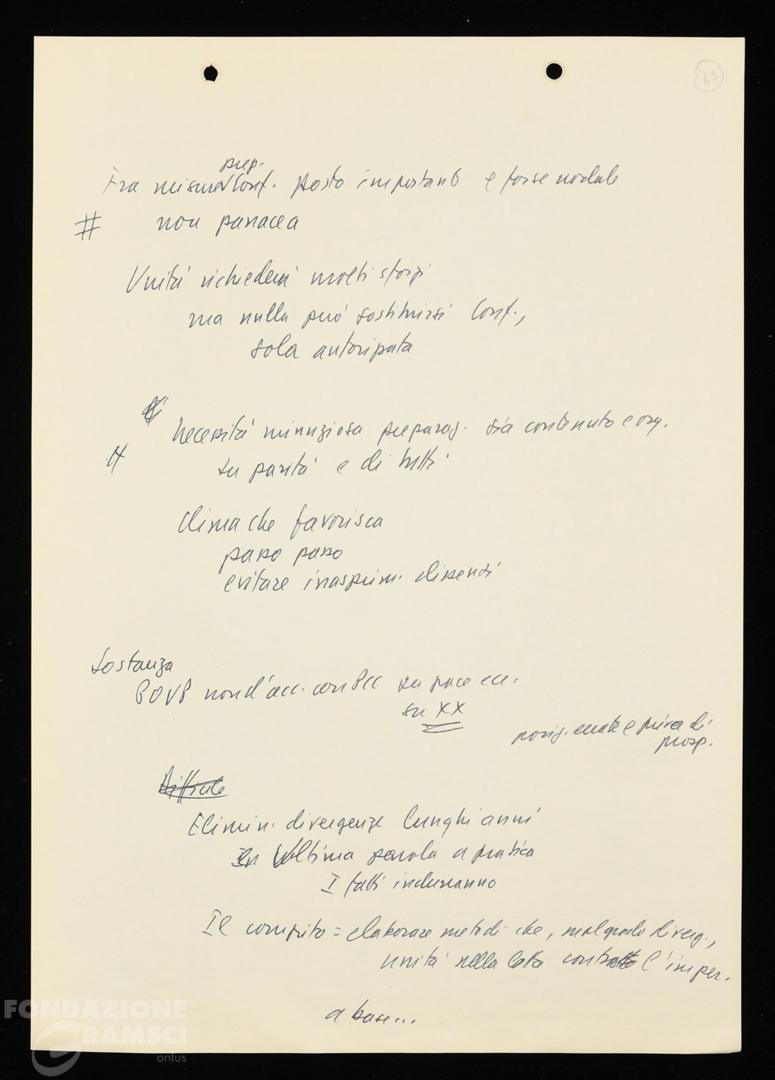 63
prep.
Fra misure Conf. posto importante e forse nodale
# non panacea
Unità richiederà molti sforzi
ma nulla può sostituirsi Conf.,
sola autorizzata
Necessità minuziosa preparaz. sia contenuto e org.
su parità e di tutti
Clima che favorisca
passo passo
evitare inasprim. dissensi
Sostanza
POUP non d'acc. con PCC su pace ecc.
su XX
posiz. errate e priva di
prosp.
Difficile
Elimin. divergenze lunghi anni
Ultima parola a pratica
I fatti indurranno
Il compito = elaborare metodi che, malgrado diverg.,
unità nella lotta contro l'imper.
a base...
FONDAZIONE
GRAMSCI
onlus